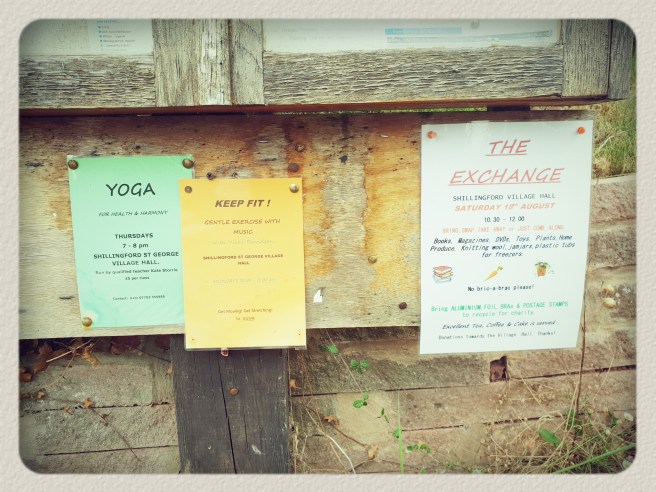 YOGA
FOR HEALTH & HARMONY
THURSDAYS
7 - 8 pm
SHILLINGFORD ST GEORGE
VILLAGE HALL.
Run by qualified teacher Kate
£5 per class
KEEP FIT !
GENTLE EXERCISE WITH
MUSIC
SHILLINGFORD ST GEORGE VILLAGE
HALL
THE
EXCHANGE
SHILLINGFORD VILLAGE HALL
SATURDAY AUGUST
10.30 - 12.00
BRING, SWAP, TAKE AWAY or JUST COME ALONG
Books, Magazines, DVDs, Toys, Plants, Home
Produce, Knitting wool, jamjars, plastic tubs
for freezers
No bric-a-brac please!
Bring ALUMINIUM FOIL, BRAs & POSTAGE STAMPS
to recycle for charity
Excellent Tea, Coffee & Cake is served
Donations towards the Village Hall. Thanks!